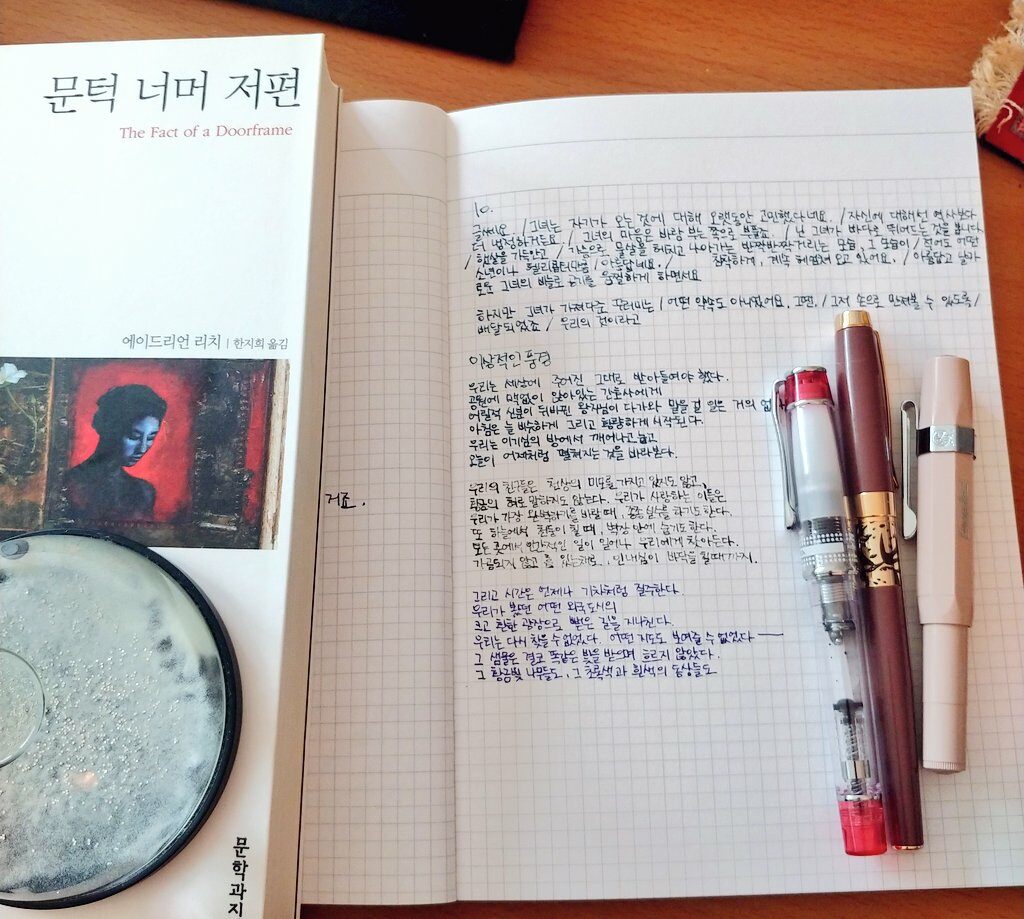 문턱 너머 저편
The Fact of a Doorframe
에이드리언 리치 | 한지희 옮김
문학과지
거죠.
10.
글쎄요, / 그녀는 자기가 오는 것에 대해 오랫동안 고민했다네요. / 자신에 대해선 역사보다
더 냉정하거든요 / 그녀의 마음은 바람 부는 쪽으로 부풀죠. / 난 그녀가 바다로 뛰어드는 것을 봅니다
/ 햇살을 가득안고 / 가슴으로 물살을 헤치고 나아가는 반짝반짝거리는 모습, 그 모습이 / 적어도 어떤
소년이나 헬리콥터만큼 / 아름답네요. / 침착하게, 계속 헤엄쳐 오고 있어요, / 아름답고 날카
로운 그녀의 바늘로 공기를 움찔하게 하면서요
하지만 그녀가 가져다준 꾸러미는 / 어떤 약속도 아니었어요, 그땐. / 그저 손으로 만져볼 수 있도록 /
배달되었죠 / 우리의 것이라고
이상적인 풍경
우리는 세상에 주어진 그대로 받아들여야 했다.
공원에 맥없이 앉아있는 간호사에게
어릴적 신분이 뒤바뀐 왕자님이 다가와 말을 걸 일은 거의 없
아침은 늘 비슷하게 그리고 황량하게 시작된다.
우리는 이기심의 방에서 깨어나고 늙고
오늘이 어제처럼 펼쳐지는 것을 바라본다.
우리의 친구들은 천상의 미모를 가지고 있지도 않고,
황금의 혀로 말하지도 않는다. 우리가 사랑하는 이들은
우리가 가장 완벽하기를 바랄 때, 종종 실수를 하기도 한다.
또 하늘에서 천둥이 칠 때, 벽장 안에 숨기도 한다.
모든 곳에서 인간적인 일이 일어나 우리에게 찾아든다.
가공되지 않고 흠 있는 채로, 인내심이 바닥을 칠 때까지.
그리고 시간은 언제나 기차처럼 질주한다.
우리가 봤던 어떤 외국도시의
크고 환한 광장으로 뻗은 길을 지나친다.
우리는 다시 찾을 수 없었다. 어떤 지도도 보여줄 수 없었다 —
그 샘물은 결코 똑같은 빛을 받으며 흐르지 않았다.
그 황금빛 나무들도, 그 초록색과 흰색의 동상들도